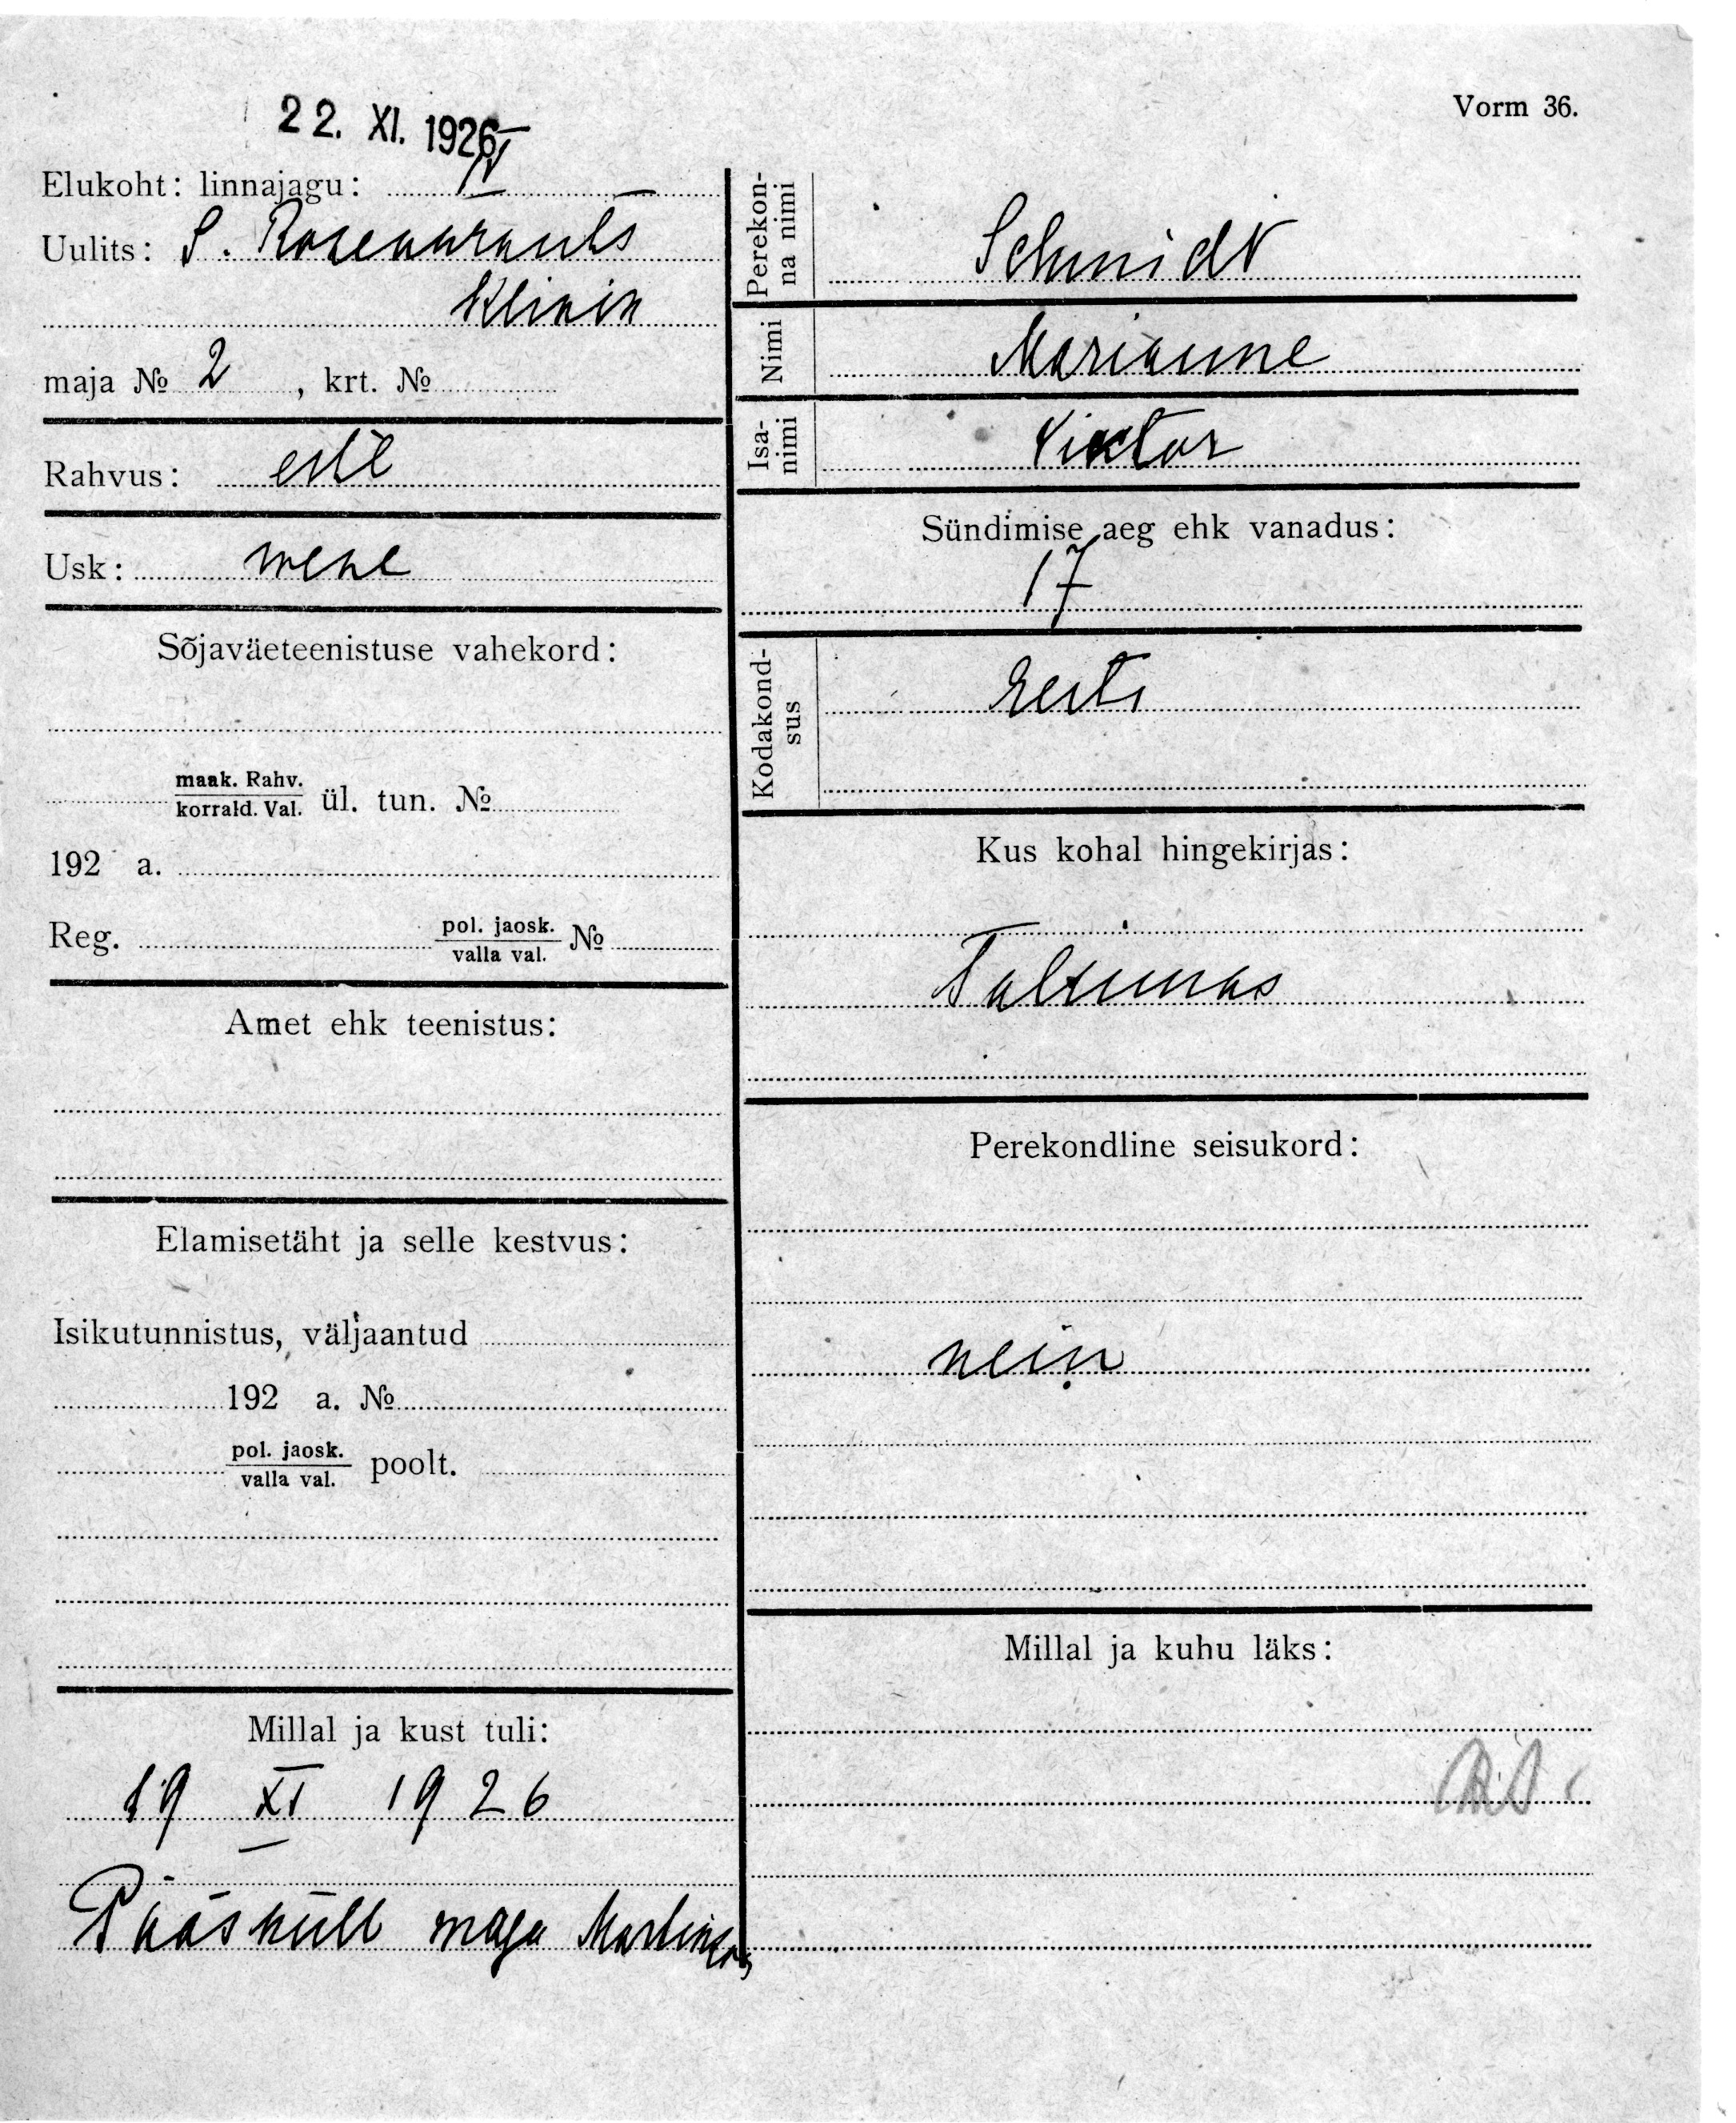 22. XI. 1926
Vorm 36.
Elukoht: linnajagu: IV
Uulits: S. Rosenkrants
Klinik
maja № 2 , krt. №
Rahvus: este
Usk: wene
Sõjaväeteenistuse vahekord:
maak. Rahv.
korrald. Val. ül. tun. №
192 a.
Reg. pol. jaosk.
valla val. №
Amet ehk teenistus:
Elamisetäht ja selle kestvus:
Isikutunnistus, väljaantud
192 a. №
pol. jaosk.
valla val. poolt.
Millal ja kust tuli:
19 XI 1926
Pääsküll maja
Perekon-
na nimi Schmidt
Nimi Marianne
Isa-
nimi Viktor
Sündimise aeg ehk vanadus:
17
Kodakond-
sus Eesti
Kus kohal hingekirjas:
Talinnas
Perekondline seisukord:
nein
Millal ja kuhu läks: